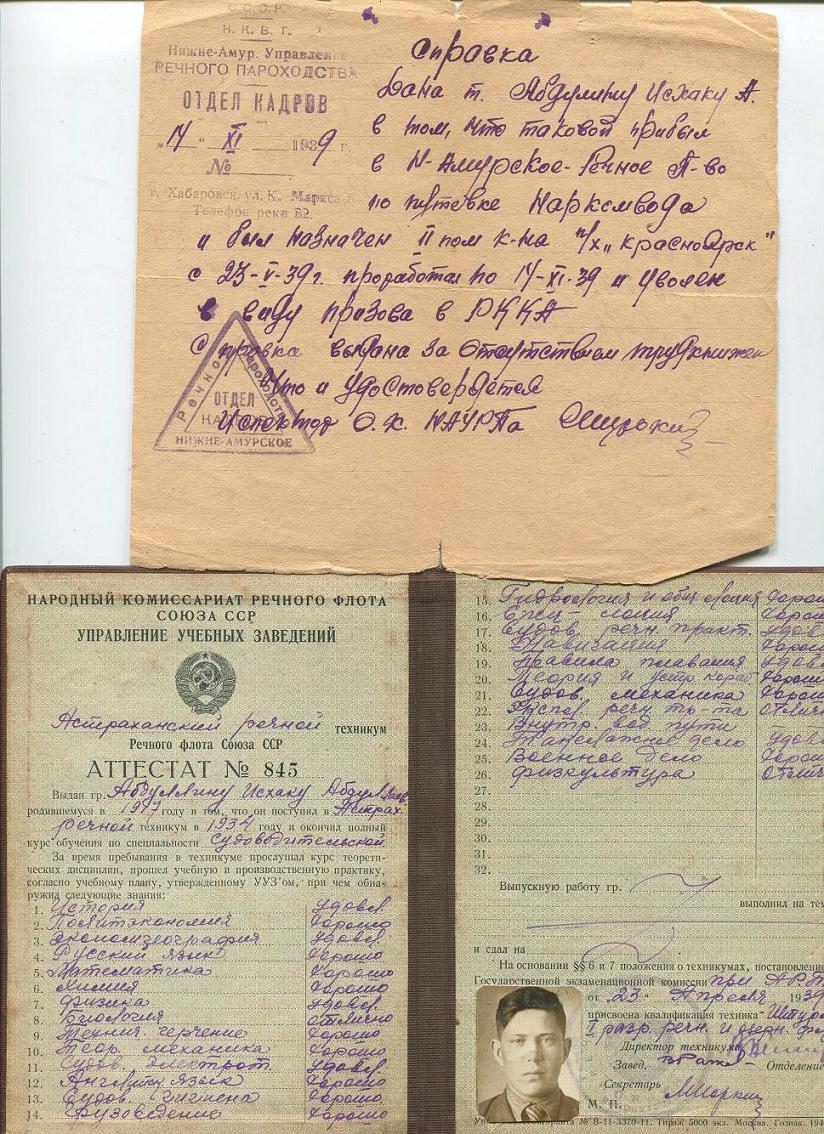 С.С.С.Р.
Н.К.В.Т.
Нижне-Амур. Управление
РЕЧНОГО ПАРОХОДСТВА
ОТДЕЛ КАДРОВ
„14" XI 1939 г.
№
г. Хабаровск, ул. К. Маркса
Телефон реки 52.
Справка
Дана т. Абдулину Исхаку А.
в том, что таковой прибыл
в Н-Амурское-Речное П-во
по путевке Наркомвода
и был назначен II пом к-на п/х „Красноярск"
с 23-V-39г. проработал по 14-XI-39 и уволен
в виду призова в РККА
Справка выдана за отсутствием трудкнижек
Что и удостоверяется
Испектор О.К. НАУРПа
Речного пароходства
ОТДЕЛ
КАДРОВ
НИЖНЕ-АМУРСКОЕ
НАРОДНЫЙ КОМИССАРИАТ РЕЧНОГО ФЛОТА
СОЮЗА ССР
УПРАВЛЕНИЕ УЧЕБНЫХ ЗАВЕДЕНИЙ
Астраханский речной техникум
Речного флота Союза ССР
АТТЕСТАТ № 845
Выдан гр. Абдуллину Исхаку
родившемуся в 1917 году в том, что он поступил в Астрах.
речной техникум в 1934 году и окончил полный
курс обучения по специальности Судоводительской
За время пребывания в техникуме прослушал курс теорети-
ческих дисциплин, прошел учебную и производственную практику,
согласно учебному плану, утвержденному УУЗ'ом, при чем обна-
ружил следующие знания:
1. История удовл.
2. Политэкономия хорошо
3. Экономгеография удовл.
4. Русский язык хорошо
5. Математика хорошо
6. Химия хорошо
7. Физика удовл.
8. Биология отлично
9. Технич. черчение хорошо
10. Теор. механика хорошо
11. Судов. электрот. удовл.
12. Английск. язык хорошо
13. Судов. гигиена хорошо
14. Грузоведение хорошо
15. Гидрология и общ. лоция хорош
16. Спец. лоция хорош
17. Судов. речн. практ. удов
18. Навигация хорош
19. Правила плавания удовл
20. Теория и устр. кораб. хорош
21. Судов. механика хорошо
22. Экспл. речн. тр-та отлич
23. Внутр. вод. пути хорош
24. Такелажное дело удовл
25. Военное дело хорошо
26. Физкультура отлич
27.
28.
29.
30.
31.
32.
Выпускную работу гр.
выполнил на тем
и сдал на
На основании §§ 6 и 7 положения о техникумах, постановлен
Государственной экзаменационной комиссии при АРТ
от „23" Апреля 1939
присвоена квалификация техника „Штур
I разр. речн. и
Директор техникума
Завед. Отделение
Секретарь
М. П.
В-11-3370-11. Тираж 5000 экз. Москва. Гознак. 194